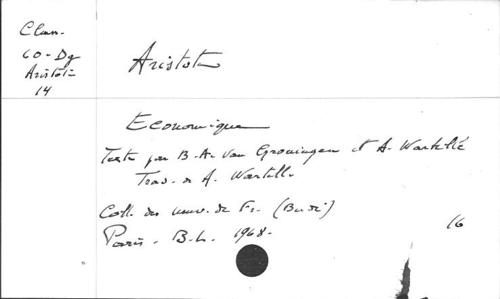 Clas.
60-Dg
Aristote
14
Aristote
Economique
Texte par B.A. van Groningen et A. Wartelle
Trad. de A. Wartelle
Coll. des univ. de Fr. (Budé)
Paris. B.L. 1968.
16